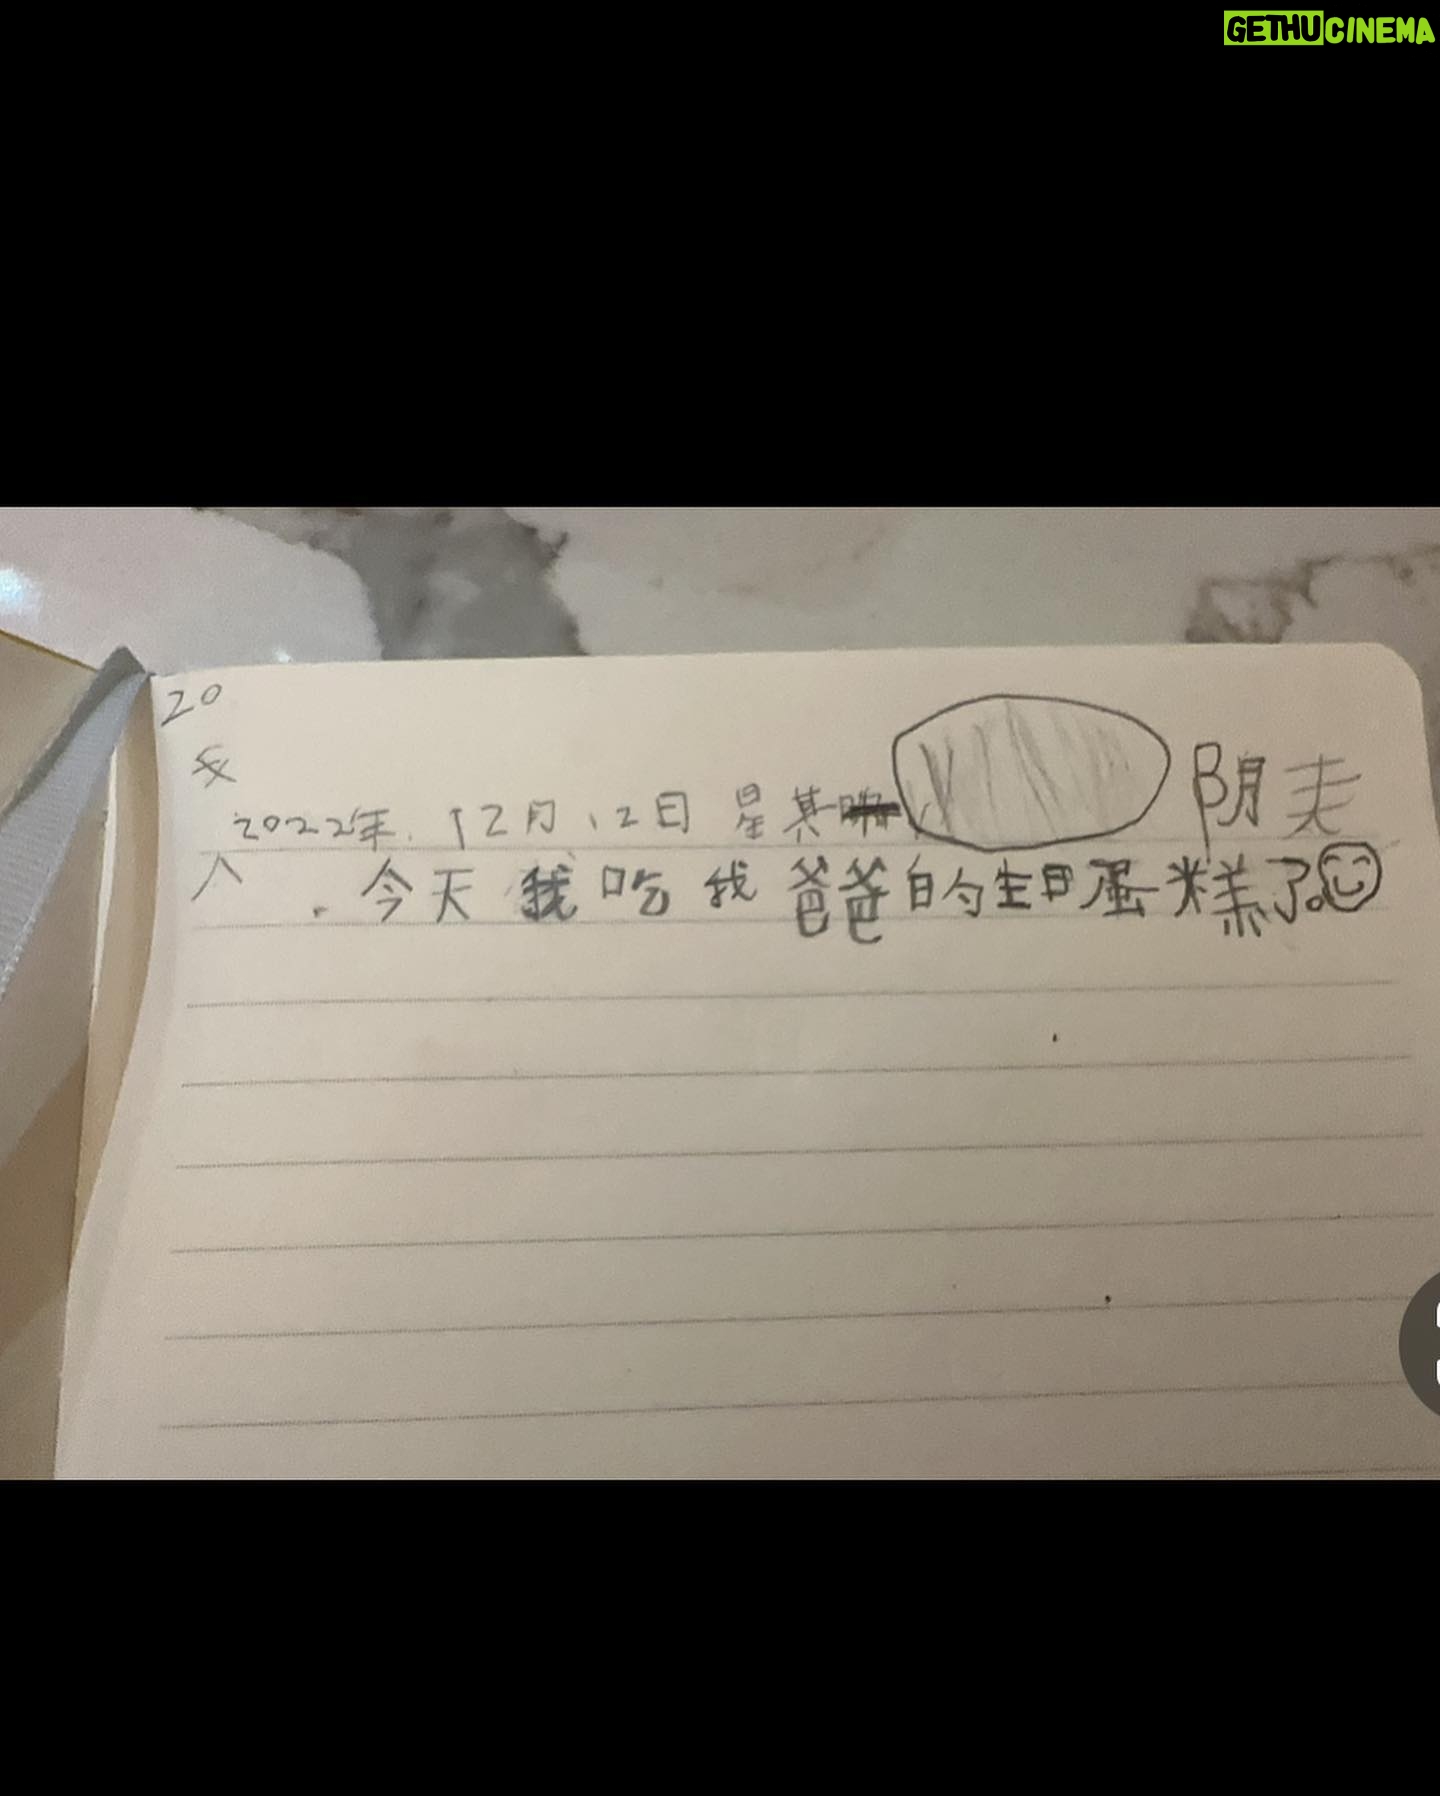 GETHUCINEMA
20
2022年.12月12日 星其 阴夫
入 .今天我吃我爸爸的生日蛋糕了。